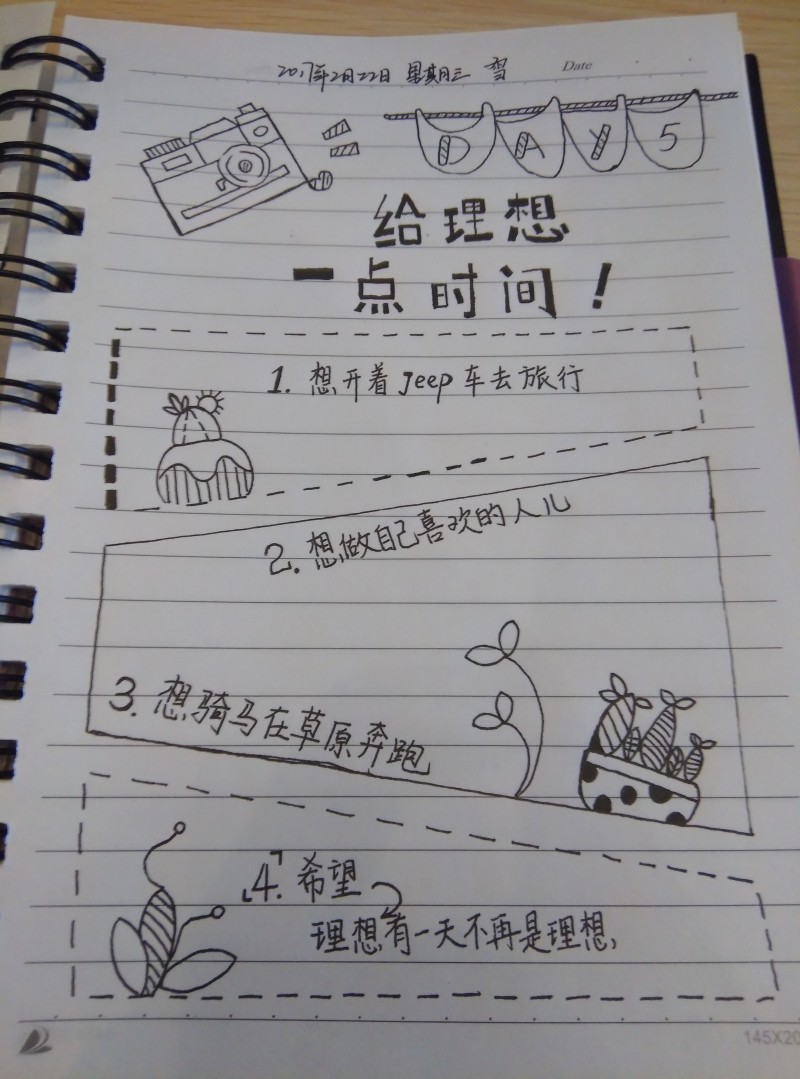 2017年2月22日 星期三 雪 Date
DAY5
给理想
一点时间！
1. 想开着Jeep车去旅行
2. 想做自己喜欢的人儿
3. 想骑马在草原奔跑
4. 希望
理想有一天不再是理想,
145X20